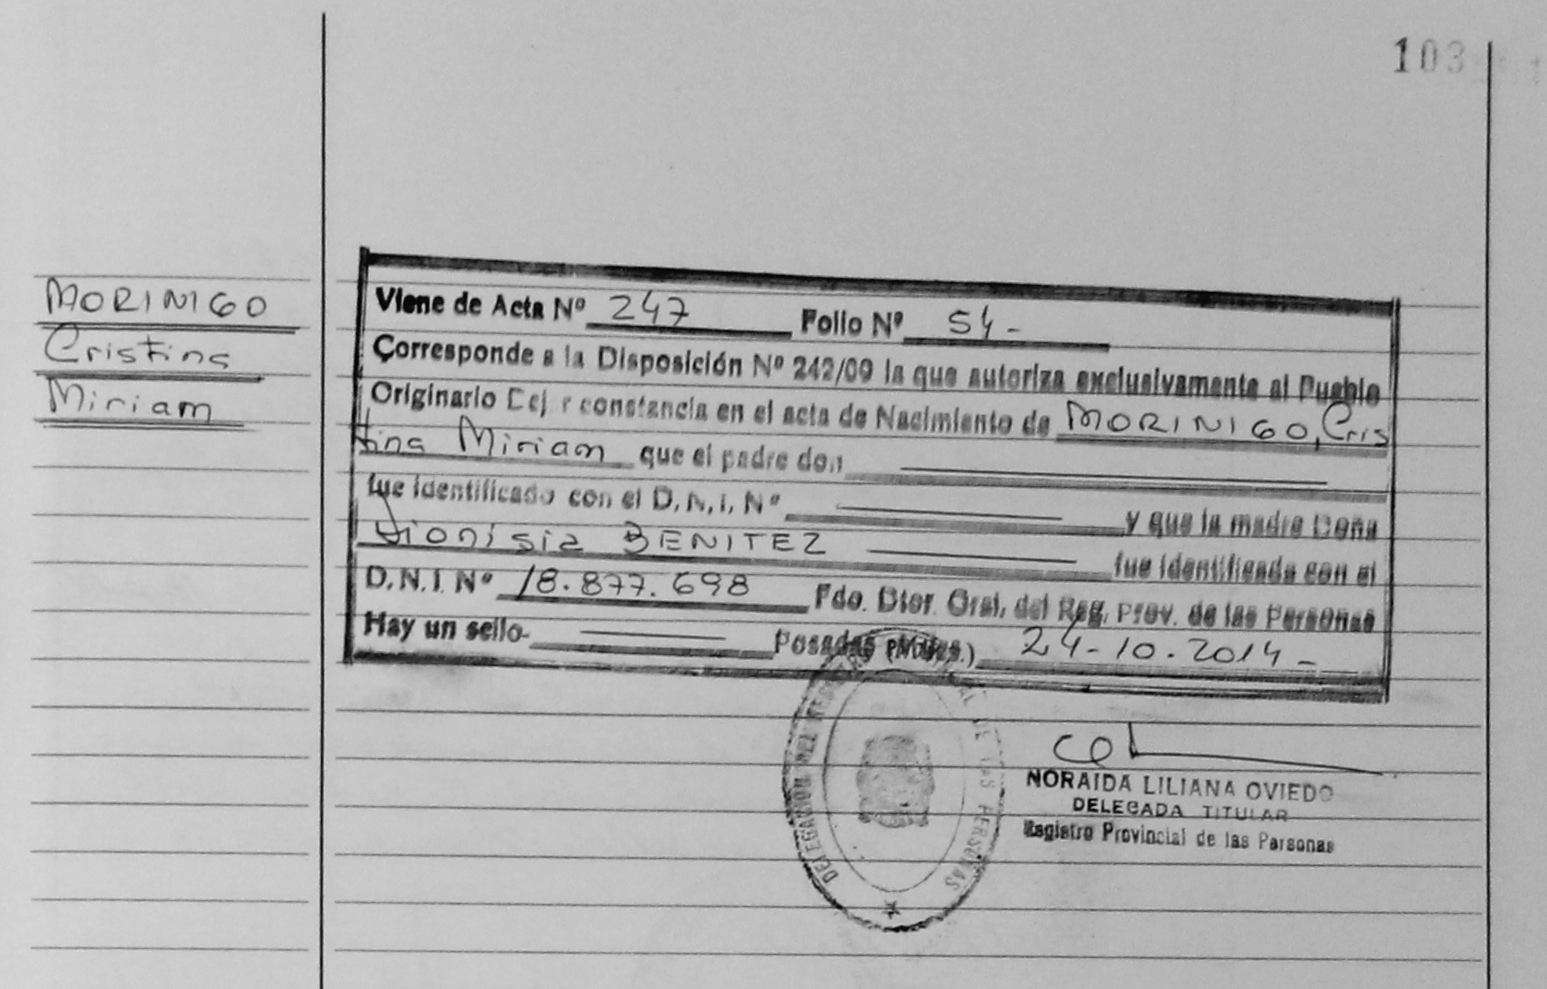 103
MORINIGO
Cristina
Miriam
Viene de Acta Nº 247 Folio Nº 54-
Corresponde a la Disposición Nº 242/09 la que autoriza exclusivamente al Pueblo
Originario Dej r constancia en el acta de Nacimiento de MORINIGO, Cris
tina Miriam que el padre don
fue identificado con el D.N.I. Nº y que la madre Doña
Dionisia BENITEZ fue identificada con el
D.N.I. Nº 18.877.698 Fdo. Dtor. Gral. del Reg. Prov. de las Personas
Hay un sello- Posadas (Mnes.) 24-10-2014-
DELEGACION DEL REGISTRO PROVINCIAL DE LAS PERSONAS
NORAIDA LILIANA OVIEDO
DELEGADA TITULAR
Registro Provincial de las Personas